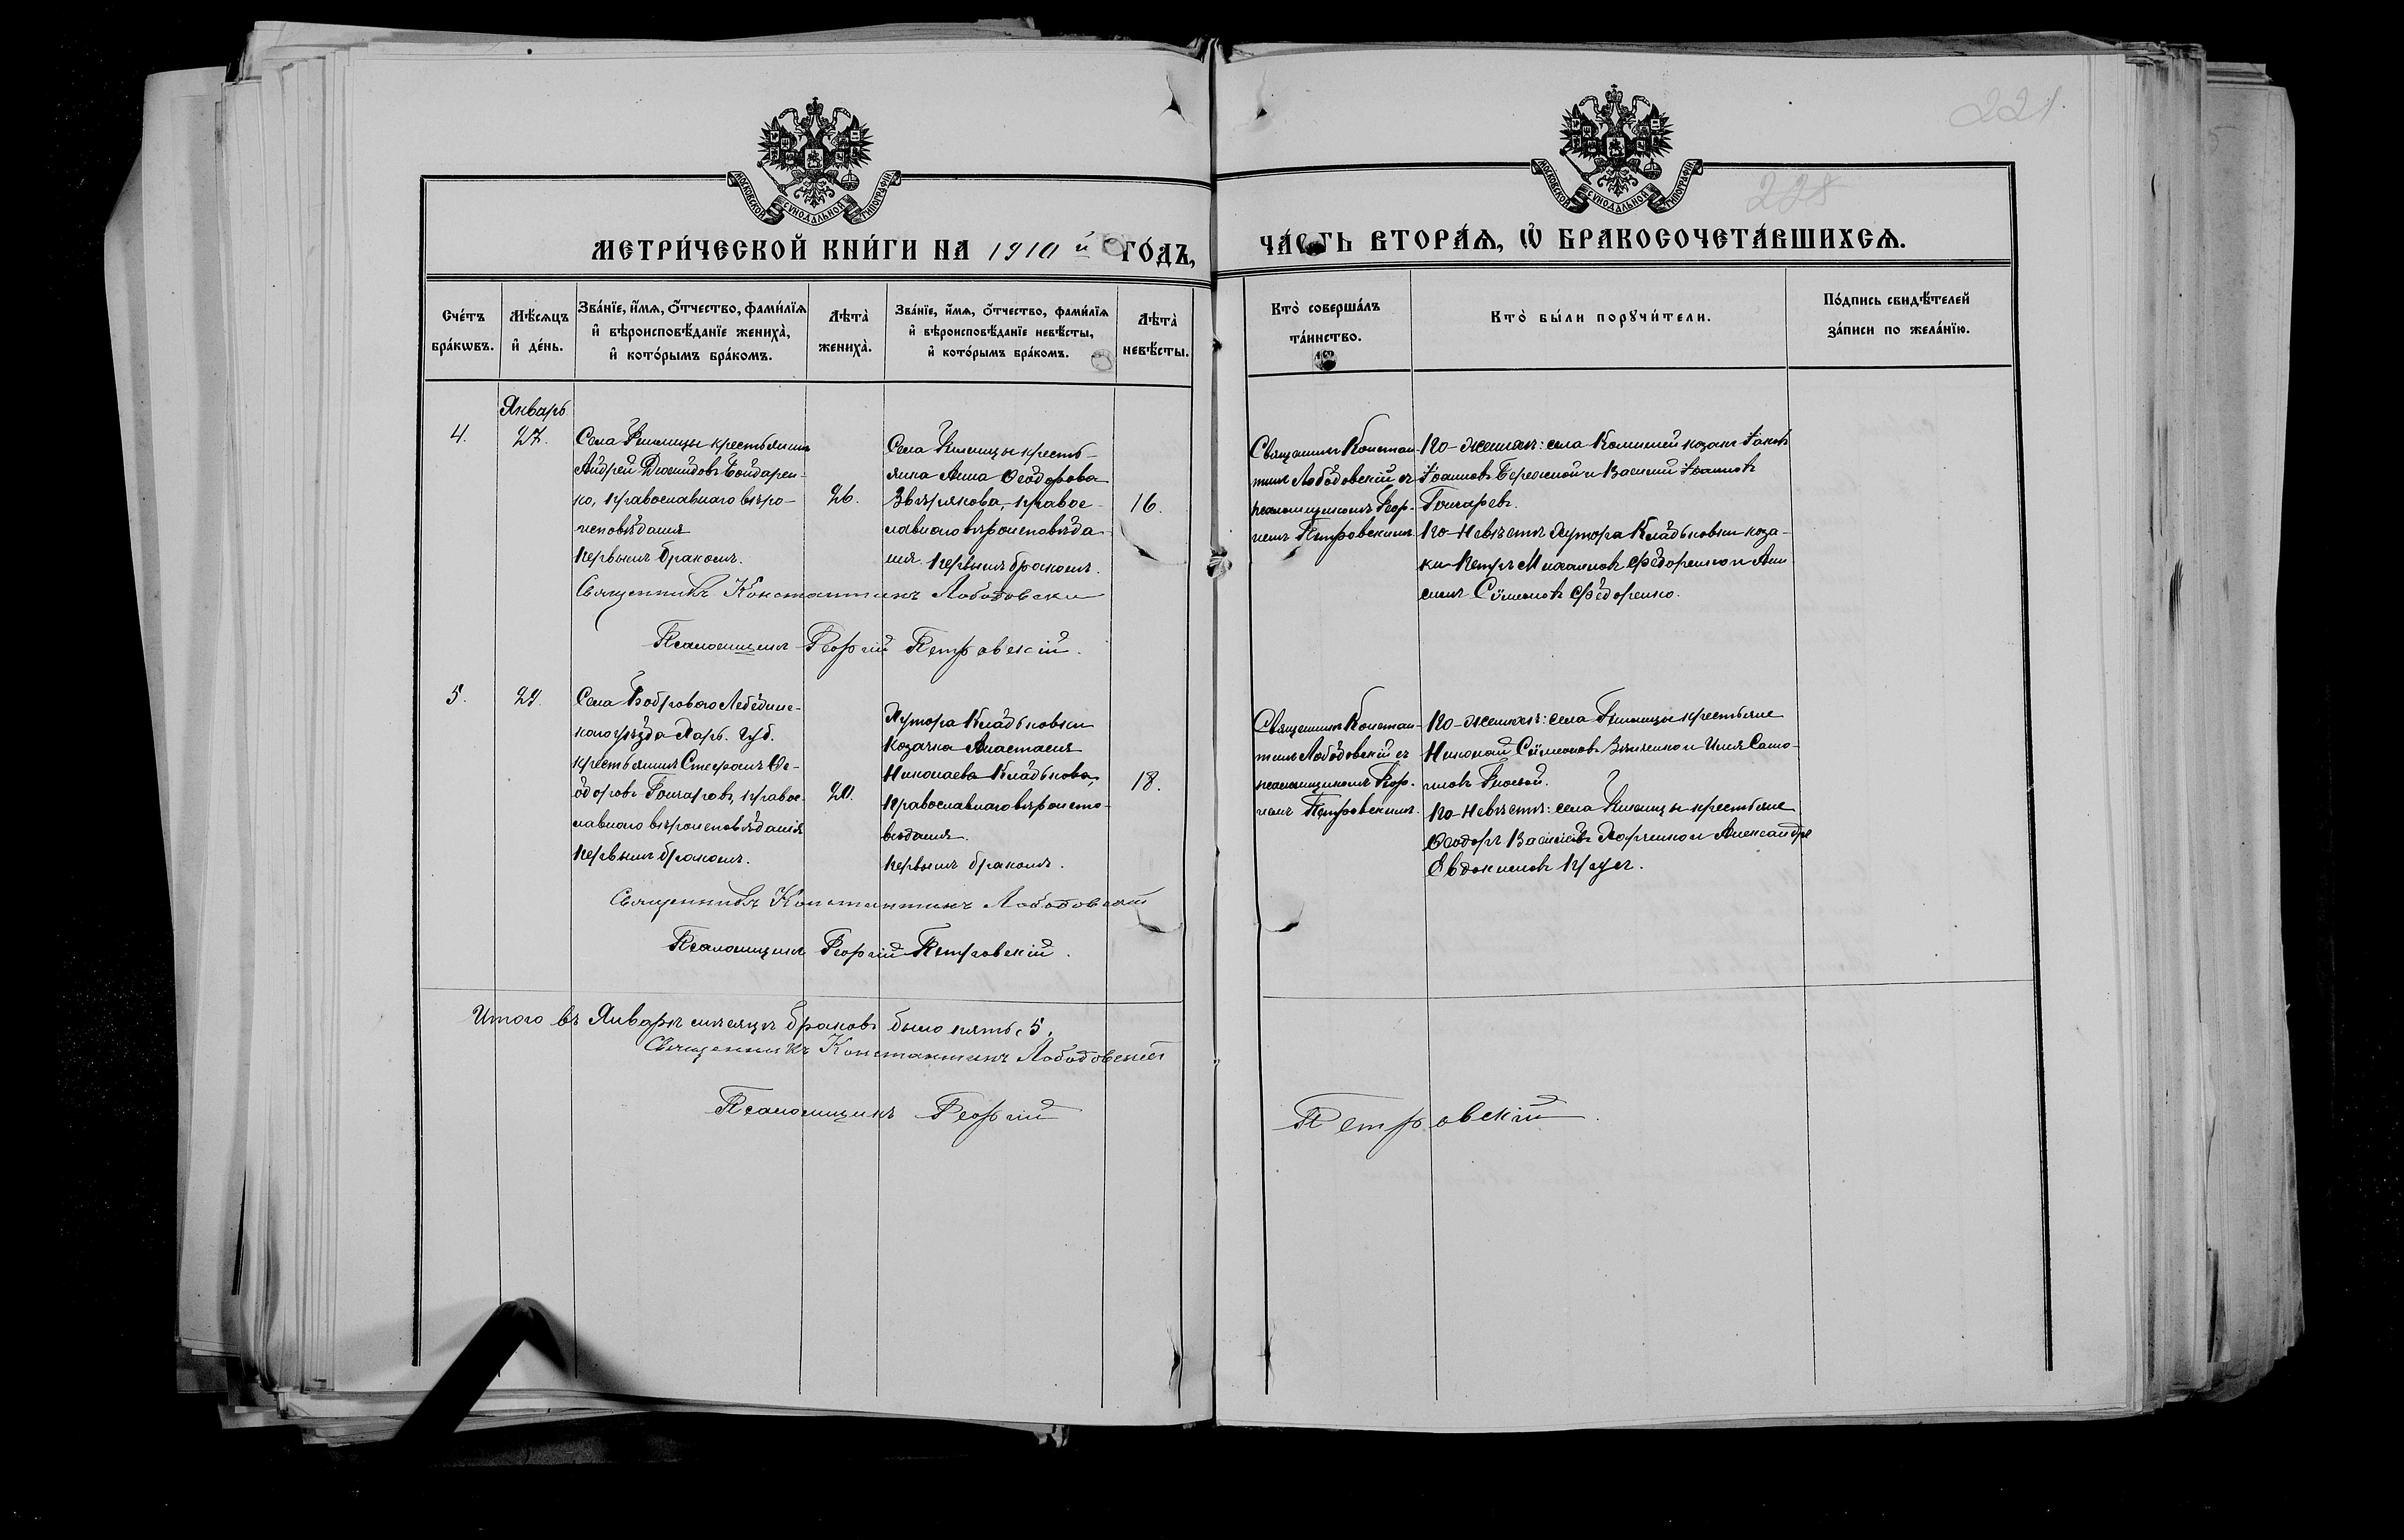 221.
228
МОСКОВСКОЙ СѴНОДАЛЬНОЙ ТИПОГРАФІИ
МОСКОВСКОЙ СѴНОДАЛЬНОЙ ТИПОГРАФІИ
МЕТРИ́ЧЕСКОЙ КНИ́ГИ НА 1910 й ГО́ДЪ,
ЧА́СТЬ ВТОРА́Ѧ, Ѽ БРАКОСОЧЕТА́ВШИХСѦ.
Сче́тъ бра́кѡвъ.
Мѣ́сѧцъ и҆ де́нь.
Зва́нїе, и҆́мѧ, ѻ҆́тчество, фами́лїѧ
и҆ вѣроисповѣ́данїе жениха̀,
и҆ кото́рымъ бра́комъ.
Лѣта̀ жениха̀.
Зва́нїе, и҆́мѧ, ѻ҆́тчество, фами́лїѧ
и҆ вѣроисповѣ́данїе невѣ́сты,
и҆ кото́рымъ бра́комъ.
Лѣта̀ невѣ́сты.
Кто̀ соверша́лъ
та́инство.
Кто̀ бы́ли порꙋчи́тели.
По́дпись свидѣ́телей
за́писи по жела́нїю.
Январь
4.
27.
Села крестьянинъ
Андрей Діомидовъ Бондарен-
ко, православнаго вѣро-
исповѣданія
первымъ бракомъ.
26.
Села кресть-
янка Анна Ѳеодорова
Звѣрякова, правос-
лавнаго вѣроисповѣда
нія. первымъ бракомъ.
16.
Священникъ Констан-
тинъ Лободовскій съ
псаломщикомъ Геор-
гіемъ Петровскимъ
По-женихѣ: села Комышей козаки Іаковъ
Іоанновъ Бережной и Василій Іоанновъ
Гончаревъ.
По-Невѣстѣ хутора Кладьковки коза-
ки Петръ Михаиловъ Ѳедоренко и
Сѵмеоновъ Ѳедоренко.
Священникъ Константинъ Лободовскій
Псаломщикъ Георгій Петровскій.
5.
29.
Села Боброваго Лебединс-
каго уѣзда Харь. губ.
крестьянинъ Стефанъ Ѳе-
одоровъ Гончаровъ, правос-
лавнаго вѣроисповѣданія
первымъ бракомъ.
20.
Хутора Кладьковки
козачка Анастасія
Николаева Кладькова,
православнаго вѣроиспо-
вѣданія.
первымъ бракомъ.
18.
Священникъ Констан-
тинъ Лободовскій съ
псаломщикомъ Геор-
гіемъ Петровскимъ.
По-женихѣ: села крестьяне
Николай Сѵмеоновъ и Илія
По-невѣстѣ: села крестьяне
Ѳеодоръ Васильевъ Харченко и Александръ
Евдокимовъ
Священникъ Константинъ Лободовскій
Псаломщикъ Георгій Петровскій.
Итого въ Январѣ мѣсяцѣ браковъ было пять, 5.
Священникъ Константинъ Лободовскій
Псаломщикъ Георгій Петровскій.